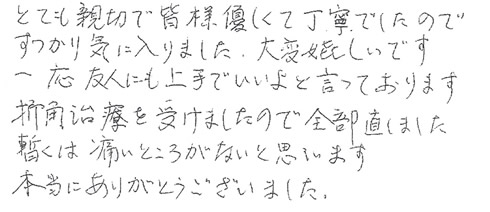 とても親切で皆様優しくて丁寧でしたので
すっかり気に入りました．大変嬉しいです
一応友人にも上手でいいよと言っております
折角治療を受けましたので全部直しました
暫くは痛いところがないと思います
本当にありがとうございました．